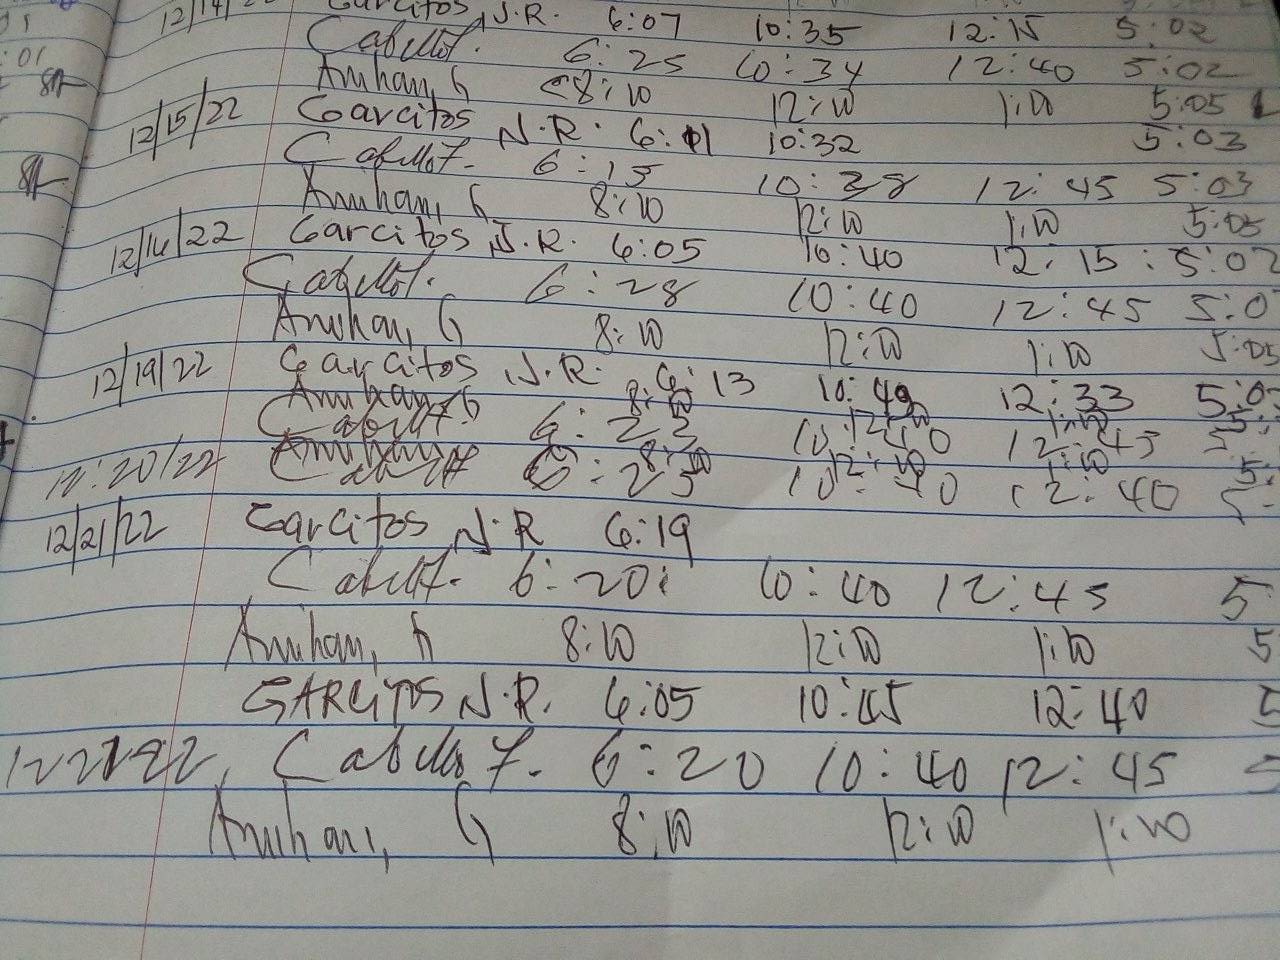 12/14/22 Garcitos J.R. 6:07 10:35 12:15 5:02
Cabello F. 6:25 10:34 12:40 5:02
Anihan, G 8:10 12:10 1:10 5:05
12/15/22 Garcitos J.R. 6:11 10:32 5:03
Cabello F. 6:15 10:38 12:45 5:03
Anihan, G 8:10 12:10 1:10 5:05
12/16/22 Garcitos J.R. 6:05 10:40 12:15 5:02
Cabello F. 6:28 10:40 12:45 5:0
Anihan, G 8:10 12:10 1:10 5:05
12/19/22 Garcitos J.R. 6:13 10:49 12:33 5:0
Anihan, G 8:10 12:10 1:10 5:
Cabello F. 6:22 10:40 12:45 5
Anihan 8:10 12:10 1:10 5:
12:20/22 Cabello F 6:25 10:40 12:40 5
12/21/22 Garcitos J.R 6:19
Cabello F. 6:20: 10:40 12:45 5
Anihan, G 8:10 12:10 1:10 5
GARCITOS J.R. 6:05 10:45 12:40 5
122192 2, Cabello F. 6:20 10:40 12:45 5
Anihan, G 8:10 12:10 1:10